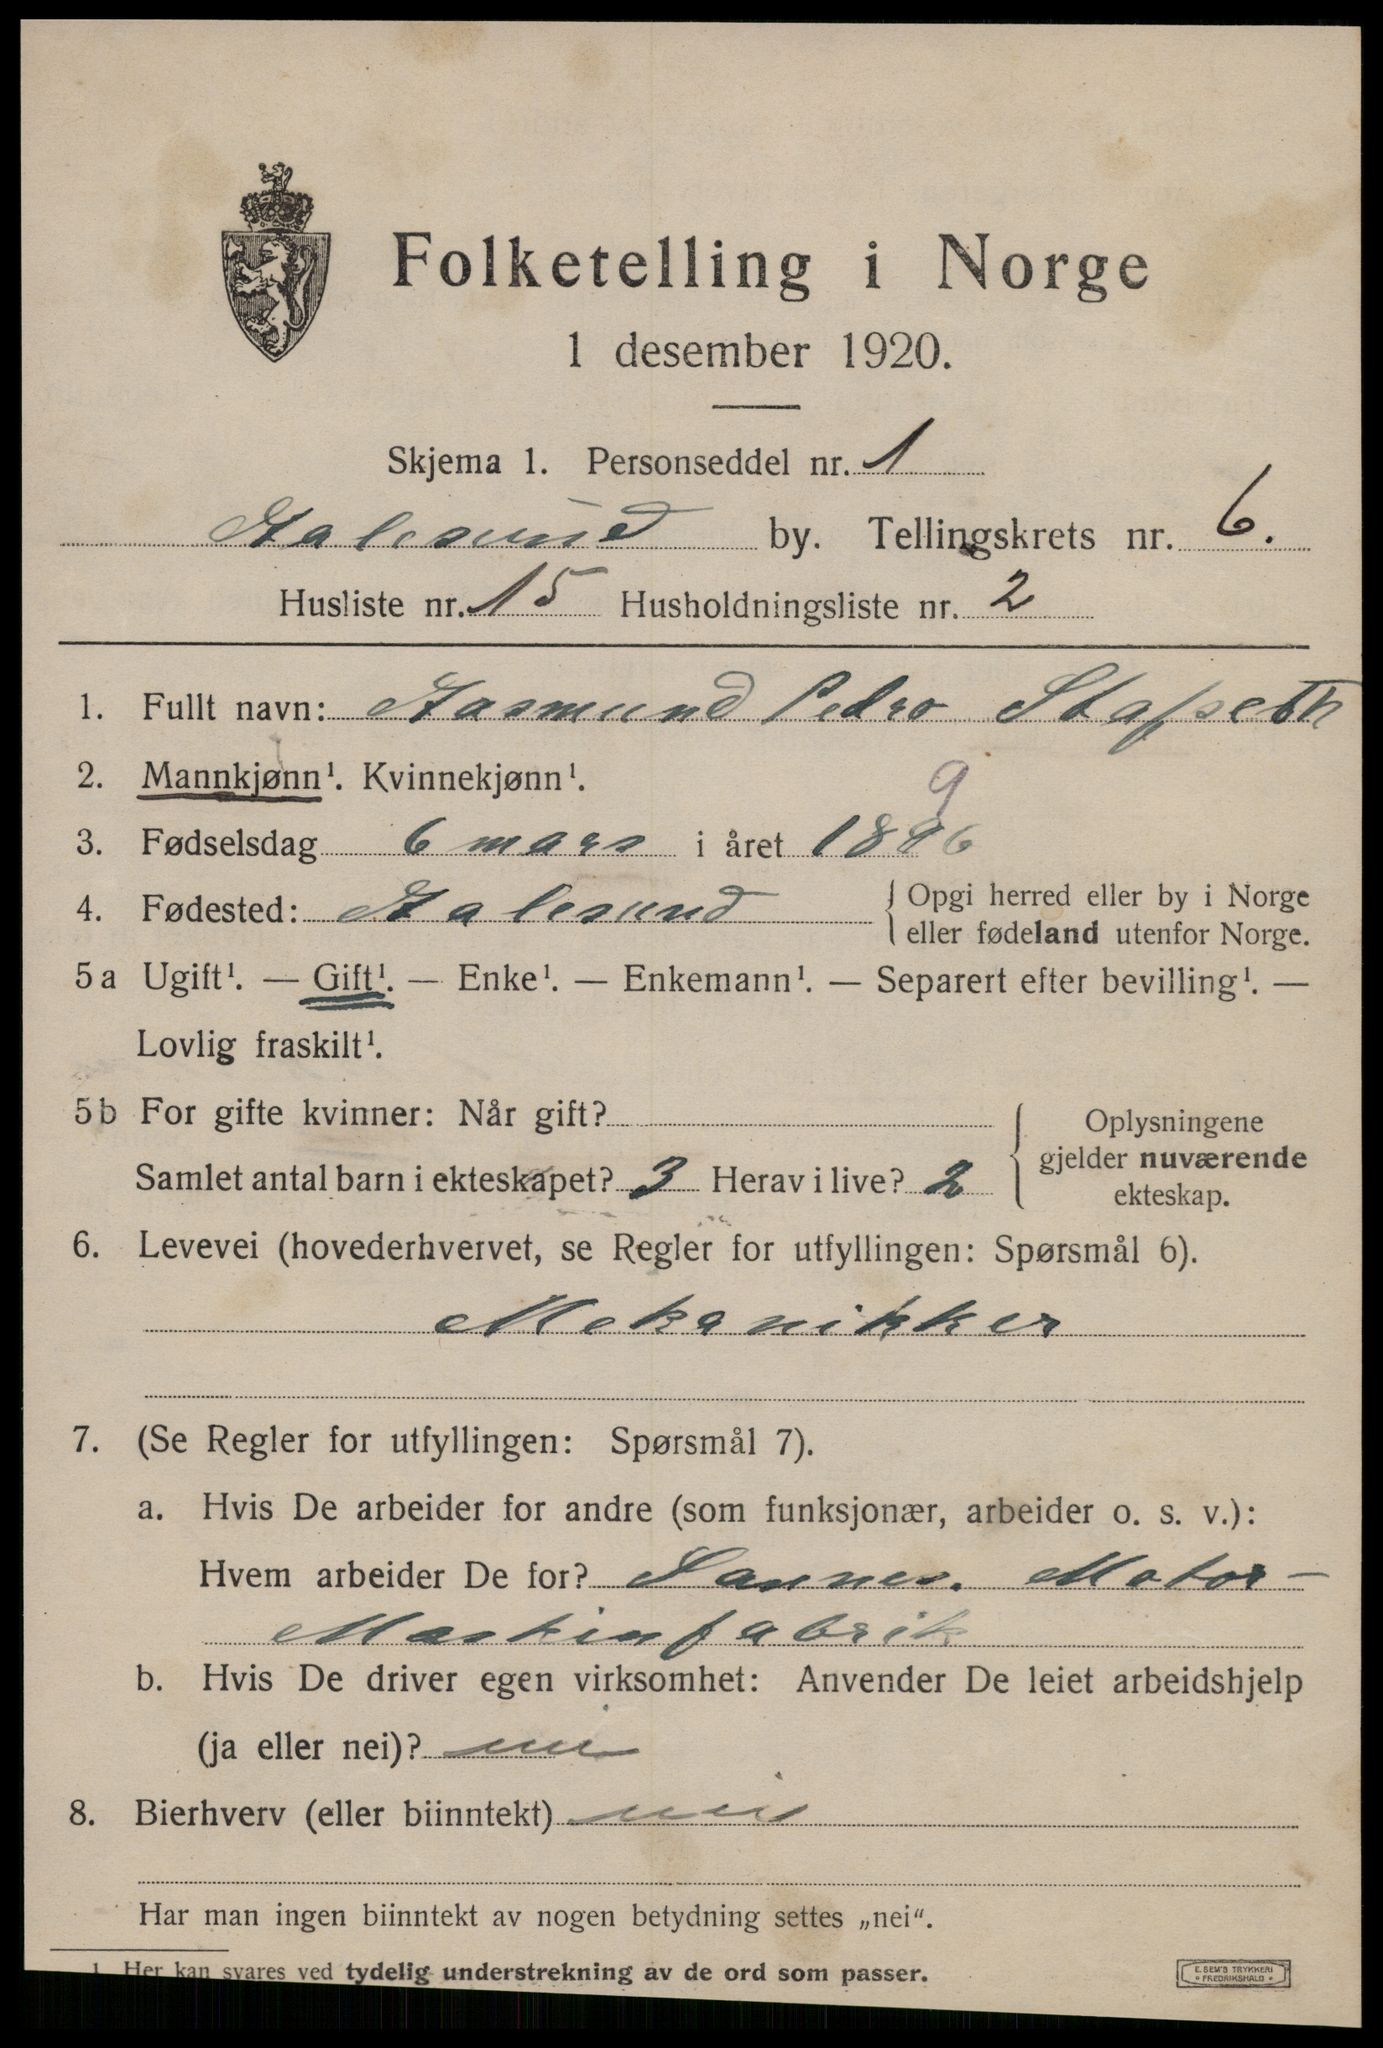 Folketelling i Norge
1 desember 1920.
Skjema 1. Personseddel nr. 1
Aalesund by. Tellingskrets nr. 6.
Husliste nr. 15 Husholdningsliste nr. 2
1. Fullt navn: Aasmund Pedro Stafseth
2. Mannkjønn¹. Kvinnekjønn¹.
9
3. Fødselsdag 6 mars i året 1896
4. Fødested: Aalesund { Opgi herred eller by i Norge
eller fødeland utenfor Norge.
5a Ugift¹. — Gift¹. — Enke¹. — Enkemann¹. — Separert efter bevilling¹. —
Lovlig fraskilt¹.
5b For gifte kvinner: Når gift? { Oplysningene
gjelder nuværende
ekteskap.
Samlet antal barn i ekteskapet? 3 Herav i live? 2
6. Levevei (hovederhvervet, se Regler for utfyllingen: Spørsmål 6).
Mekanikker
7. (Se Regler for utfyllingen: Spørsmål 7).
a. Hvis De arbeider for andre (som funksjonær, arbeider o. s. v.):
Hvem arbeider De for? Sannes. Motor-
Maskinfabrik
b. Hvis De driver egen virksomhet: Anvender De leiet arbeidshjelp
(ja eller nei)? nei
8. Bierhverv (eller biinntekt) nei
Har man ingen biinntekt av nogen betydning settes „nei“.
1 Her kan svares ved tydelig understrekning av de ord som passer.
E. SEM'S TRYKKERI
FREDRIKSHALD